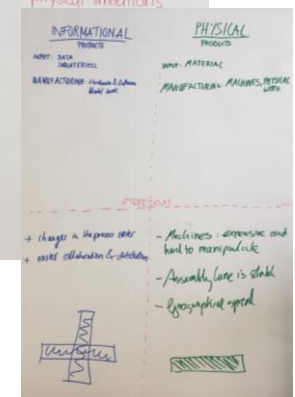 physical limitations
INFORMATIONAL
PRODUCTS
INPUT: DATA
IMMATERIELL
MANUFACTURING: Hardware & Software
Mental work
PHYSICAL
PRODUCTS
INPUT: MATERIAL
MANUFACTURING: MACHINES, PHYSICAL
WORK
FREEDOMS
+ changes in the process easier
+ easier collaboration & distribution
- Machines: expensive and
hard to manipulate
- Assembly line is static
- Geographical spread